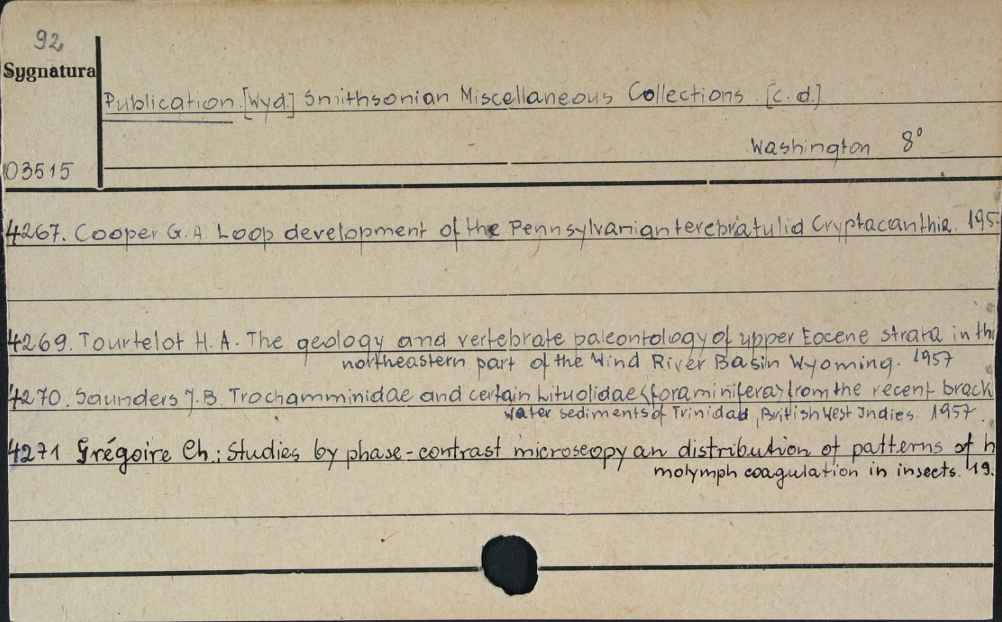 92
Sygnatura
Publication. [Wyd] Smithsonian Miscellaneous Collections. [c.d.]
Washington 8°
03515
4267. Cooper G.A. Loop development of the Pennsylvanian terebratulid Cryptacanthia. 195
4269. Tourtelot H.A. The geology and vertebrate paleontology of upper Eocene strata in the
northeastern part of the Wind River Basin Wyoming. 1957
4270. Saunders J.B. Trochamminidae and certain Lituolidae (foraminifera) from the recent brack
water sediments of Trinidad, British West Indies. 1957
4271 Grégoire Ch.: Studies by phase-contrast microscopy an distribution of patterns of h
molymph coagulation in insects. 19.